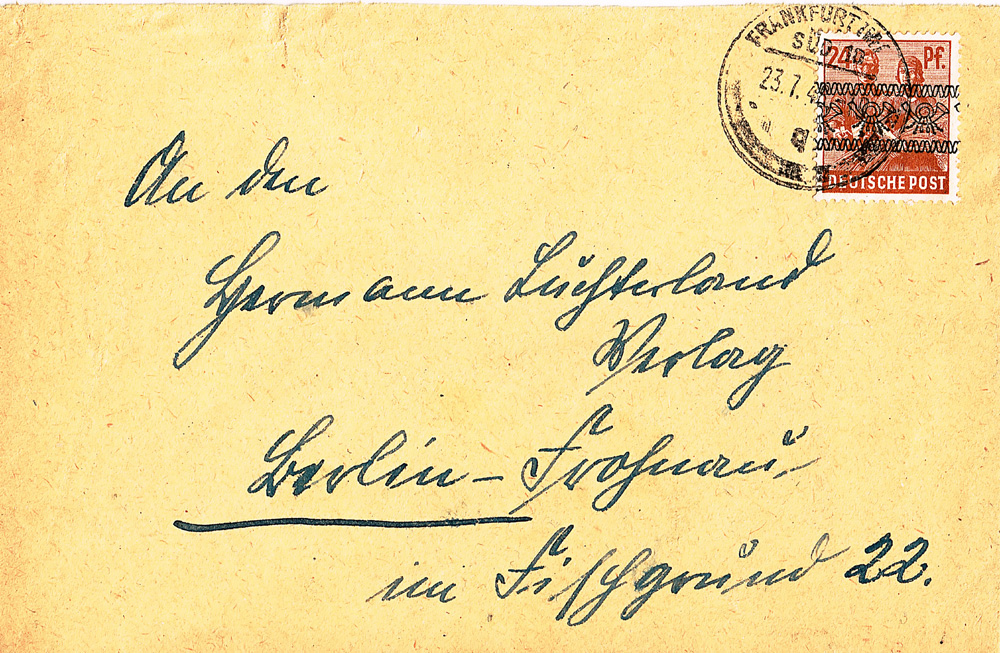 FRANKFURT (M)
SÜD
23.7.4
24 Pf.
DEUTSCHE POST
An den
Hermann Luchterland
Verlag
Berlin-Frohnau
im Fischgrund 22.